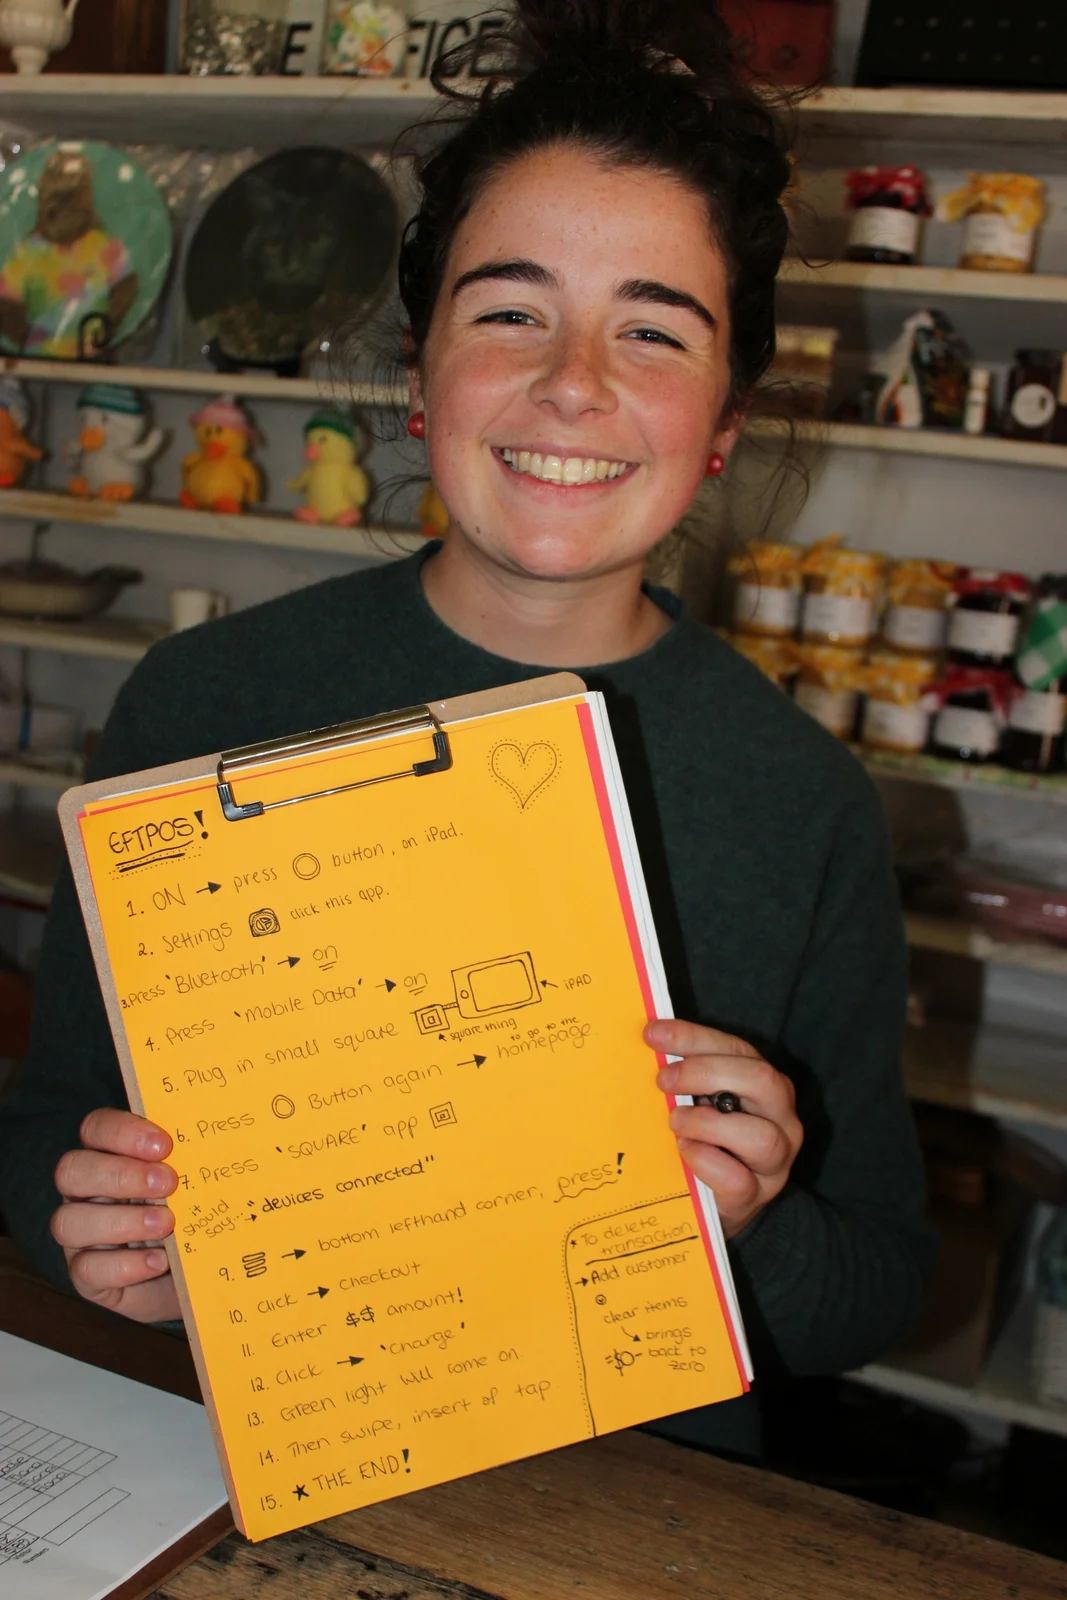 FICE
EFTPOS!
1. ON → press button, on iPad.
2. Settings click this app.
3. Press 'Bluetooth' → on
4. Press 'Mobile Data' → on
5. Plug in small square
iPAD
square thing
6. Press Button again → to go to the homepage
7. Press 'SQUARE' app
8. it should say... → "devices connected"
9. → bottom lefthand corner, press!
10. Click → checkout
11. Enter $$ amount!
12. Click → 'charge'
13. Green light will come on
14. Then swipe, insert of tap
15. ★ THE END!
★ To delete
transaction
→ Add customer
clear items
brings
=$0- back to
zero